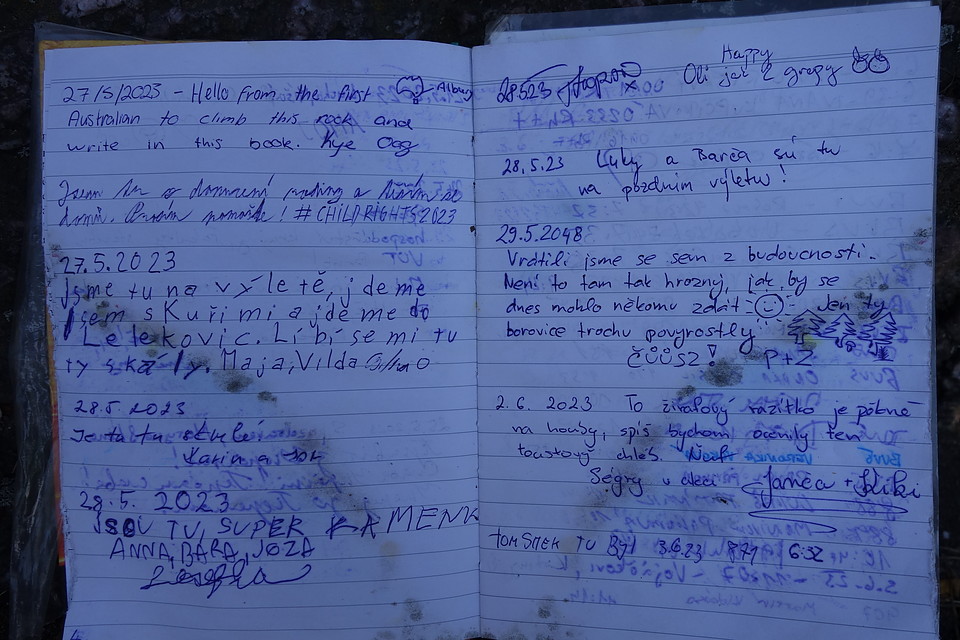 27/5/2023 - Hello from the first
Australian to climb this rock and
write in this book. Kye
Jsem tu s a
domů. Prosím pomozte! #CHILDRIGHTS2023
27.5.2023
jsme tu na výletě, jdeme
sem s Kuřimi a jdeme do
Lelekovic. Líbí se mi tu
ty skály. Maja, Vilda
28.5.2023
Je to tu skvělé
28.5.2023
JSOU TU, SUPER KAMENY
ANNA, BARA, JOZA
Happy
Oli jak 2 grepy
28.5.23
28.5.23 Luky a Barča sú tu
na pozdním výletu!
29.5.2048
Vrátili jsme se sem z budoucnosti.
Není to tam tak hrozný, jak by se
dnes mohlo někomu zdát Jen ty
borovice trochu povyrostly
ČŮŮSZ! P+Z
2.6.2023 To žirafový razítko je pěkné
na houby, spíš bychom ocenily ten
toustový chleb.
Ségry v akci Janča + Kiki
TOM SMEK TU BYL 3.6.23 6:32